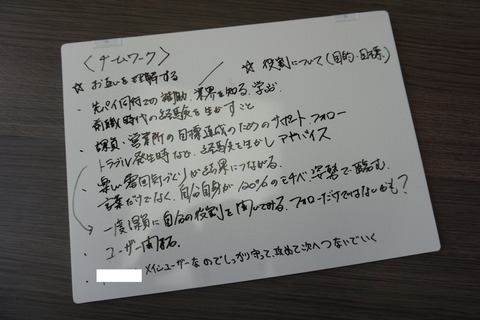 〈チームワーク〉
☆お互いを理解する
☆役割について(目的・目標)
・先パイ同行での活動、業界を知る、学ぶ
前職時代の経験を生かすこと
・課員・営業所の目標達成のためのサポート、フォロー
トラブル発生時など、経験を生かしアドバイス
・楽しい雰囲気づくりが結果につながる。
言葉だけでなく、自分自身が100%のモチベ、姿勢で臨む。
一度課員に自分の役割を聞いてみる。フォローだけではないかも?
・ユーザー開拓
・メインユーザーなのでしっかり守って、攻めて次へつないでいく